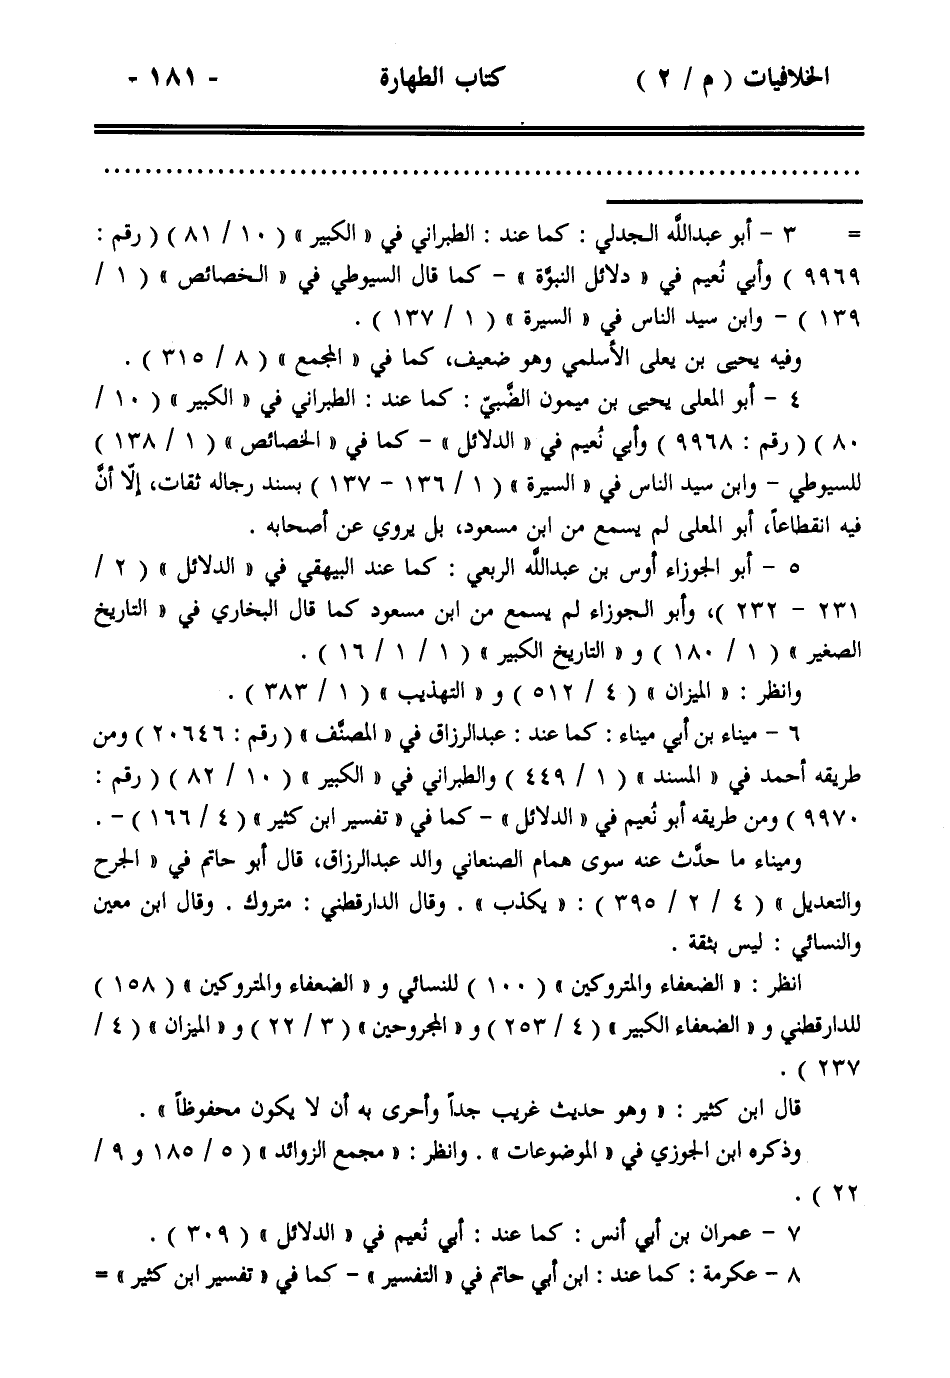 الخلافيات ( م / ٢ ) كتاب الطهارة - ١٨١ -
......................................................................
= ٣ - أبو عبداللَّه الجدلي : كما عند : الطبراني في « الكبير » ( ١٠ / ٨١ ) ( رقم :
٩٩٦٩ ) وأبي نُعيم في « دلائل النبوَّة » - كما قال السيوطي في « الخصائص » ( ١ /
١٣٩ ) - وابن سيد الناس في « السيرة » ( ١ / ١٣٧ ) .
وفيه يحيى بن يعلى الأسلمي وهو ضعيف، كما في « المجمع » ( ٨ / ٣١٥ ) .
٤ - أبو المعلى يحيى بن ميمون الضَّبيّ : كما عند : الطبراني في « الكبير » ( ١٠ /
٨٠ ) ( رقم : ٩٩٦٨ ) وأبي نُعيم في « الدلائل » - كما في « الخصائص » ( ١ / ١٣٨ )
للسيوطي - وابن سيد الناس في « السيرة » ( ١ / ١٣٦ - ١٣٧ ) بسند رجاله ثقات، إلّا أنَّ
فيه انقطاعاً، أبو المعلى لم يسمع من ابن مسعود، بل يروي عن أصحابه .
٥ - أبو الجوزاء أوس بن عبداللَّه الربعي : كما عند البيهقي في « الدلائل » ( ٢ /
٢٣١ - ٢٣٢ )، وأبو الجوزاء لم يسمع من ابن مسعود كما قال البخاري في « التاريخ
الصغير » ( ١ / ١٨٠ ) و « التاريخ الكبير » ( ١ / ١ / ١٦ ) .
وانظر : « الميزان » ( ٤ / ٥١٢ ) و « التهذيب » ( ١ / ٣٨٣ ) .
٦ - ميناء بن أبي ميناء : كما عند : عبدالرزاق في « المصنَّف » ( رقم : ٢٠٦٤٦ ) ومن
طريقه أحمد في « المسند » ( ١ / ٤٤٩ ) والطبراني في « الكبير » ( ١٠ / ٨٢ ) ( رقم :
٩٩٧٠ ) ومن طريقه أبو نُعيم في « الدلائل » - كما في « تفسير ابن كثير » ( ٤ / ١٦٦ ) - .
وميناء ما حدَّث عنه سوى همام الصنعاني والد عبدالرزاق، قال أبو حاتم في « الجرح
والتعديل » ( ٤ / ٢ / ٣٩٥ ) : « يكذب » . وقال الدارقطني : متروك . وقال ابن معين
والنسائي : ليس بثقة .
انظر : « الضعفاء والمتروكين » ( ١٠٠ ) للنسائي و « الضعفاء والمتروكين » ( ١٥٨ )
للدارقطني و « الضعفاء الكبير » ( ٤ / ٢٥٣ ) و « المجروحين » ( ٣ / ٢٢ ) و « الميزان » ( ٤ /
٢٣٧ ) .
قال ابن كثير : « وهو حديث غريب جداً وأحرى به أن لا يكون محفوظاً » .
وذكره ابن الجوزي في « الموضوعات » . وانظر : « مجمع الزوائد » ( ٥ / ١٨٥ و ٩ /
٢٢ ) .
٧ - عمران بن أبي أنس : كما عند : أبي نُعيم في « الدلائل » ( ٣٠٩ ) .
٨ - عكرمة : كما عند : ابن أبي حاتم في « التفسير » - كما في « تفسير ابن كثير » =